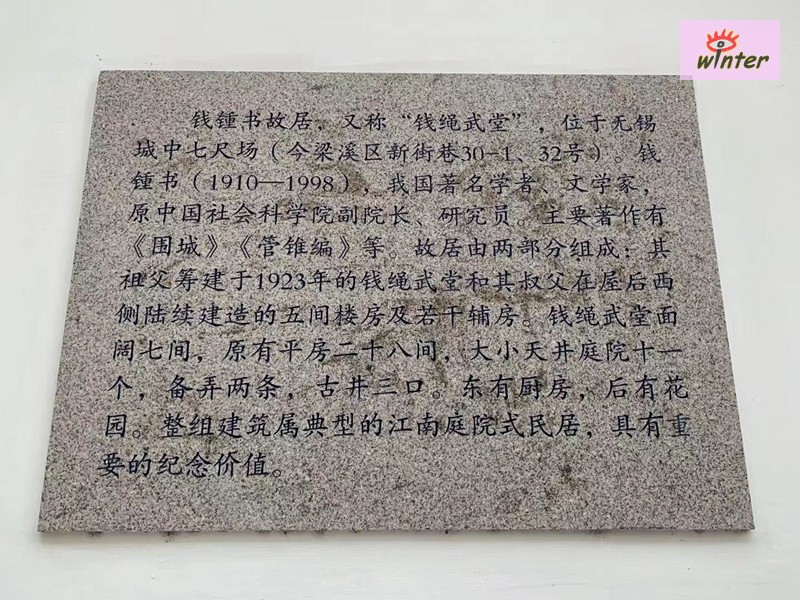 winter
钱锺书故居，又称“钱绳武堂”，位于无锡
城中七尺场（今梁溪区新街巷30-1、32号）。钱
锺书（1910—1998），我国著名学者、文学家，
原中国社会科学院副院长、研究员。主要著作有
《围城》《管锥编》等。故居由两部分组成：其
祖父筹建于1923年的钱绳武堂和其叔父在屋后西
侧陆续建造的五间楼房及若干辅房。钱绳武堂面
阔七间，原有平房二十八间，大小天井庭院十一
个，备弄两条，古井三口。东有厨房，后有花
园。整组建筑属典型的江南庭院式民居，具有重
要的纪念价值。